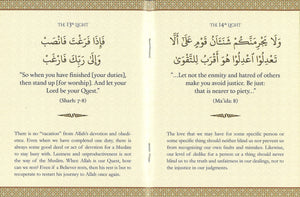 THE 13th LIGHT
فَإِذَا فَرَغْتَ فَانْصَبْ
وَإِلَىٰ رَبِّكَ فَارْغَبْ
"So when you have finished [your duties],
then stand up [for worship]. And let your
Lord be your Quest."
(Sharh: 7-8)
There is no "vacation" from Allah's devotion and obedi-
ence. Even when we have completed our duty, there is
always some good deed or act of devotion for a Muslim
to stay busy with. Laziness and unproductiveness is not
the way of the Muslim. When Allah is our Quest, how
can we rest? Even if a Believer rests, then his rest is but to
recuperate to restart his journey to Allah once again.
THE 14th LIGHT
وَلَا يَجْرِمَنَّكُمْ شَنَآنُ قَوْمٍ عَلَىٰ أَلَّا
تَعْدِلُوا اعْدِلُوا هُوَ أَقْرَبُ لِلتَّقْوَىٰ
"...Let not the enmity and hatred of others
make you avoid justice. Be just:
that is nearer to piety..."
(Ma'ida: 8)
The love that we may have for some specific person or
some specific thing should neither blind us nor prevent us
from recognizing our own faults and mistakes. Likewise,
our level of dislike for a person or a thing should never
blind us to the truth and unfairness in our dealings, not to
the injustice in our judgments.